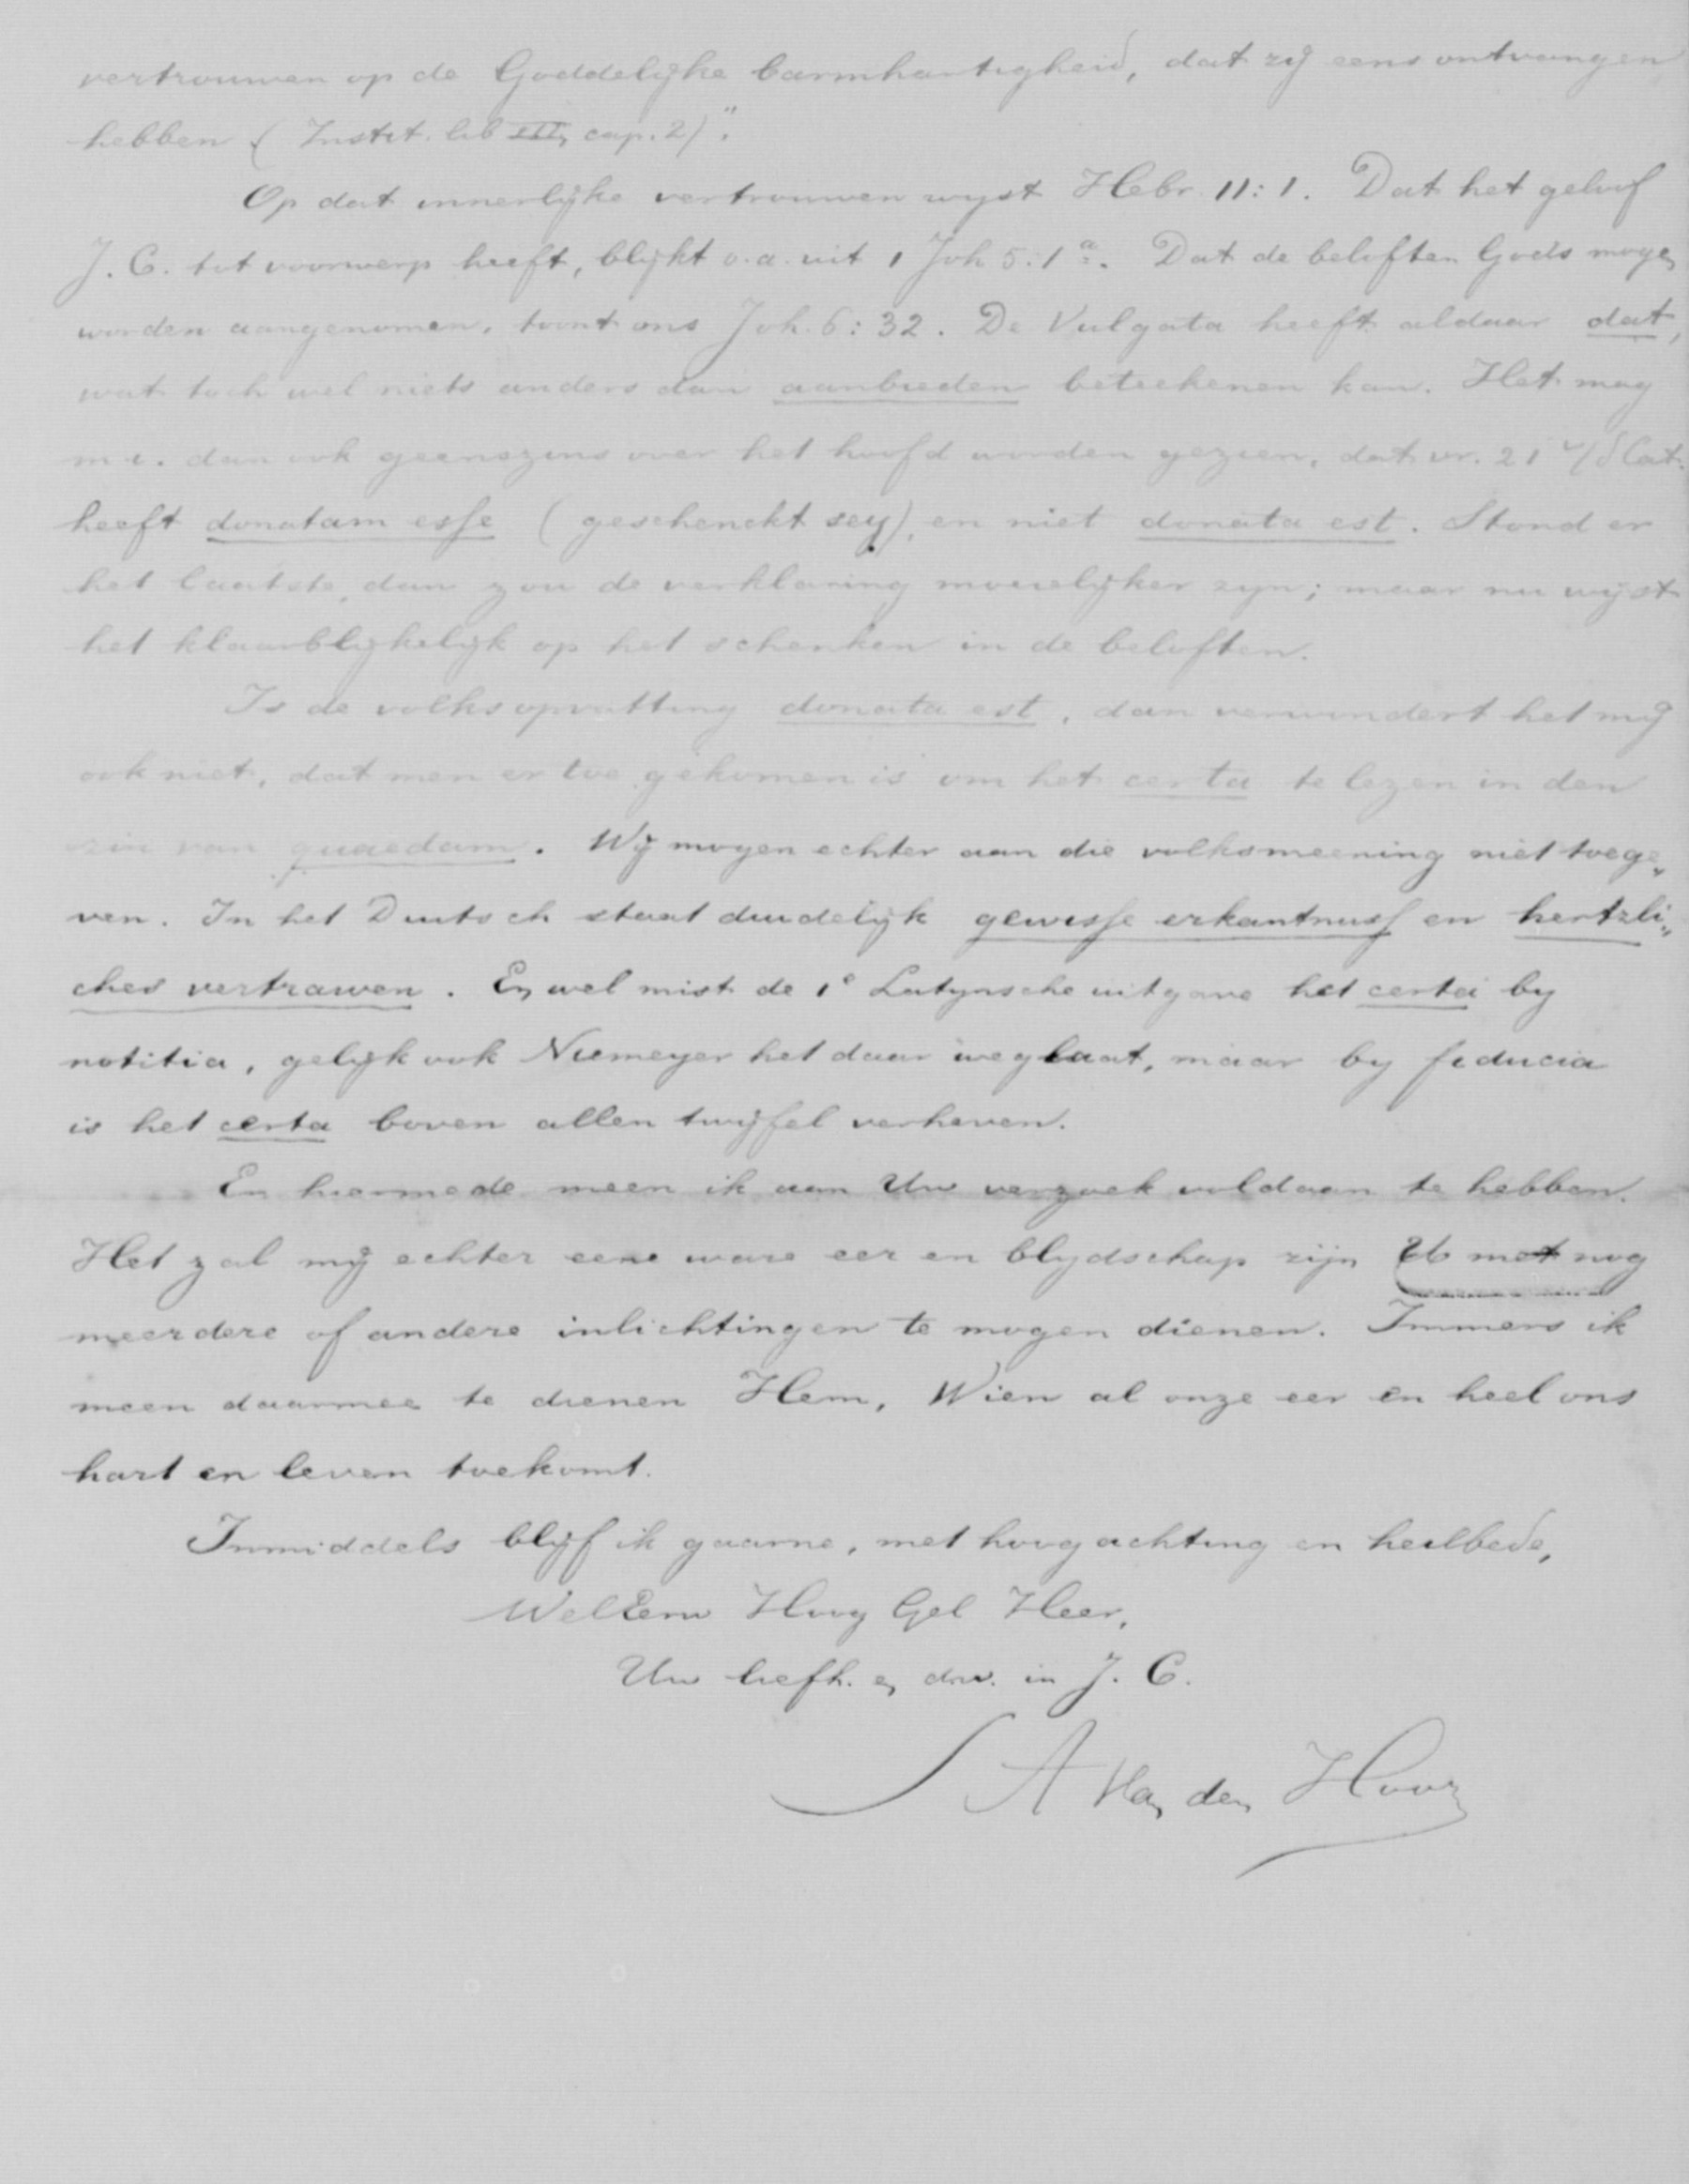 vertrouwen op de Goddelijke barmhartigheid, dat zij eens ontvangen
hebben (Instit. lib III, cap. 2)".
Op dat innerlijke vertrouwen wijst Hebr. 11:1. Dat het geloof
J. C. tot voorwerp heeft, blijkt o.a. uit 1 Joh 5:1a. Dat de beloften Gods mogen
worden aangenomen, toont ons Joh. 6:32. De Vulgata heeft aldaar dat,
wat toch wel niets anders dan aanbieden beteekenen kan. Het mag
m.i. dan ook geenszins over het hoofd worden gezien, dat vr. 21 v/d Cat.
heeft donatam esse (geschenckt sey), en niet donata est. Stond er
het laatste, dan zou de verklaring moeielijker zijn; maar nu wijst
het klaarblijkelijk op het schenken in de beloften.
Is de volksopvatting donata est, dan verwondert het mij
ook niet, dat men er toe gekomen is om het certa te lezen in den
zin van quaedam. Wij mogen echter aan die volksmeening niet toege„
ven. In het Duitsch staat duidelijk gewisse erkantnuss en hertzli„
ches vertrawen. En wel mist de 1e Latijnsche uitgave het certa by
notitia, gelijk ook Niemeyer het daar weglaat, maar by fiducia
is het certa boven allen twijfel verheven.
En hiermede meen ik aan Uw verzoek voldaan te hebben.
Het zal mij echter eene ware eer en blydschap zijn U met nog
meerdere of andere inlichtingen te mogen dienen. Immers ik
meen daarmee te dienen Hem, Wien al onze eer en heel ons
hart en leven toekomt.
Inmiddels blijf ik gaarne, met hoogachting en heilbede,
WelEerw Hoog Gel Heer,
Uw liefh. en dw. in J. C.
A Van den Hoorn